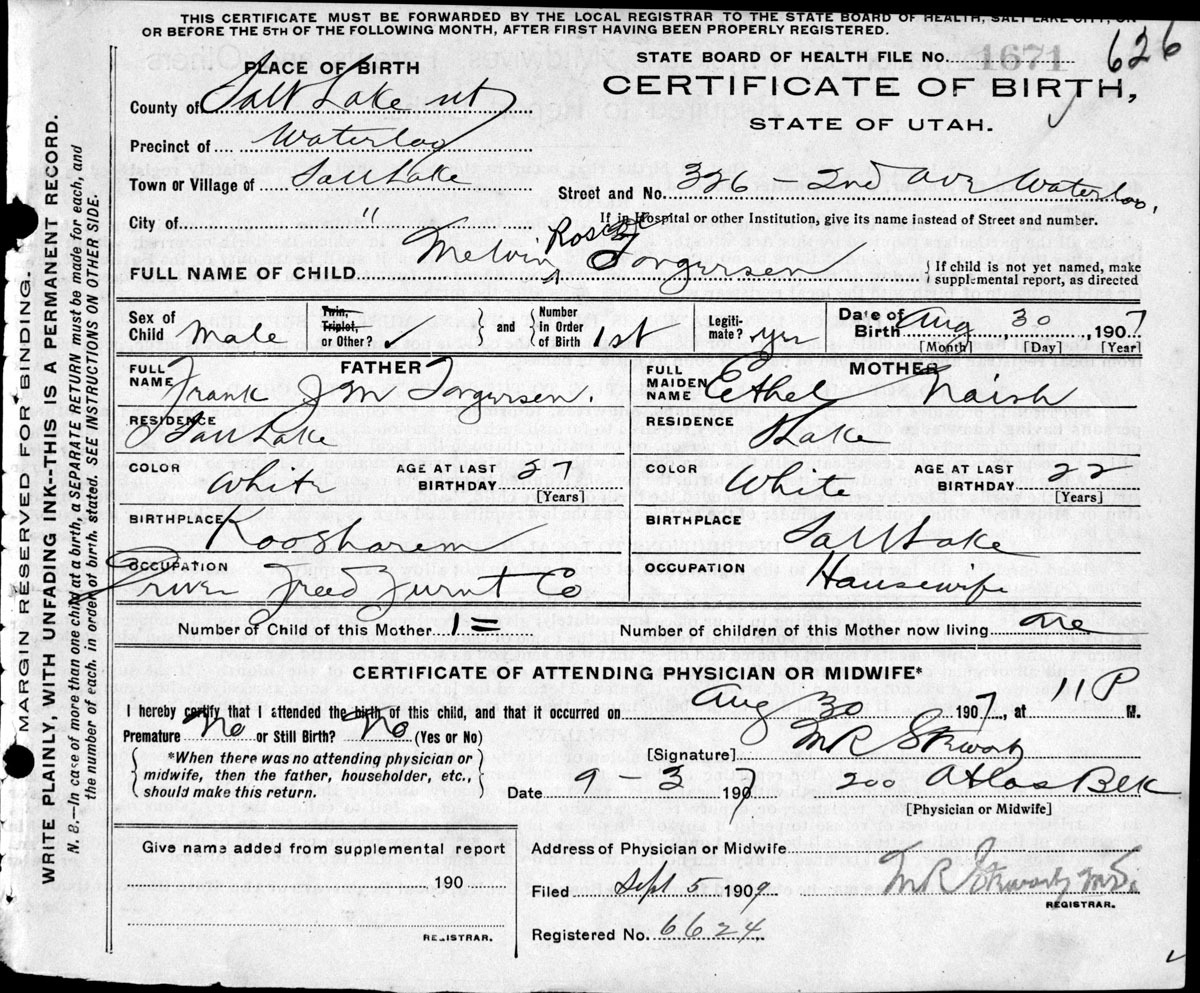 THIS CERTIFICATE MUST BE FORWARDED BY THE LOCAL REGISTRAR TO THE STATE BOARD OF HEALTH, SALT LAKE CITY, ON
OR BEFORE THE 5TH OF THE FOLLOWING MONTH, AFTER FIRST HAVING BEEN PROPERLY REGISTERED.
STATE BOARD OF HEALTH FILE No. 1671 626
CERTIFICATE OF BIRTH,
STATE OF UTAH.
PLACE OF BIRTH
County of Salt Lake ut
Precinct of Waterloo
Town or Village of Salt Lake
Street and No. 326 2nd Ave Waterloo,
City of "
If in Hospital or other Institution, give its name instead of Street and number.
FULL NAME OF CHILD Melvin Torgersen
{ If child is not yet named, make
supplemental report, as directed
Sex of Child Male
Twin, Triplet, or Other? ✓ } and { Number in Order of Birth 1st
Legitimate? yes
Date of Birth Aug 30 1907
[Month] [Day] [Year]
FATHER
FULL NAME Frank J M Torgersen.
MOTHER
FULL MAIDEN NAME Ethel Naish
RESIDENCE Salt Lake
RESIDENCE S Lake
COLOR White AGE AT LAST BIRTHDAY 27 [Years]
COLOR White AGE AT LAST BIRTHDAY 22 [Years]
BIRTHPLACE Koosharem
BIRTHPLACE Salt Lake
OCCUPATION Driver Freed Furnt Co
OCCUPATION Housewife
Number of Child of this Mother 1=
Number of children of this Mother now living one
CERTIFICATE OF ATTENDING PHYSICIAN OR MIDWIFE*
I hereby certify that I attended the birth of this child, and that it occurred on Aug 30 1907, at 11 P M.
Premature No or Still Birth? No (Yes or No)
{ *When there was no attending physician or
midwife, then the father, householder, etc.,
should make this return. }
[Signature] M R
Date 9-3 1907 200 Atlas Blk
[Physician or Midwife]
Give name added from supplemental report
190
REGISTRAR.
Address of Physician or Midwife
Filed Sept 5 1909 M R
REGISTRAR.
Registered No. 6624
MARGIN RESERVED FOR BINDING.
WRITE PLAINLY, WITH UNFADING INK--THIS IS A PERMANENT RECORD.
N. B.—In case of more than one child at a birth, a SEPARATE RETURN must be made for each, and
the number of each, in order of birth, stated. SEE INSTRUCTIONS ON OTHER SIDE.